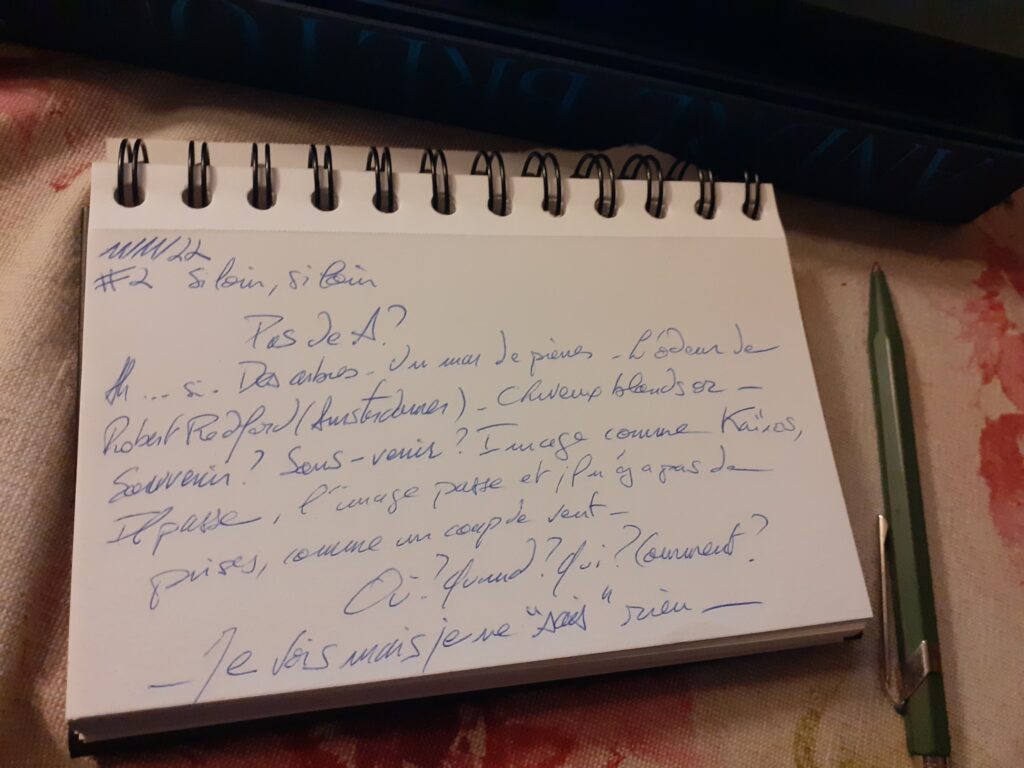 ANDRÉ BRETO
#2 Si loin, si loin
Pas de A?
Ah ... si. Des arbres - Un mur de pierres - L'odeur de
Robert Redford (Amsterdamer) - Cheveux blonds or -
Souvenir? Sous-venir? Image comme Kaïros,
Il passe, l'image passe et il n'y a pas de
prises, comme un coup de vent -
Où? Quand? Qui? Comment?
— Je vois mais je ne "sais" rien —